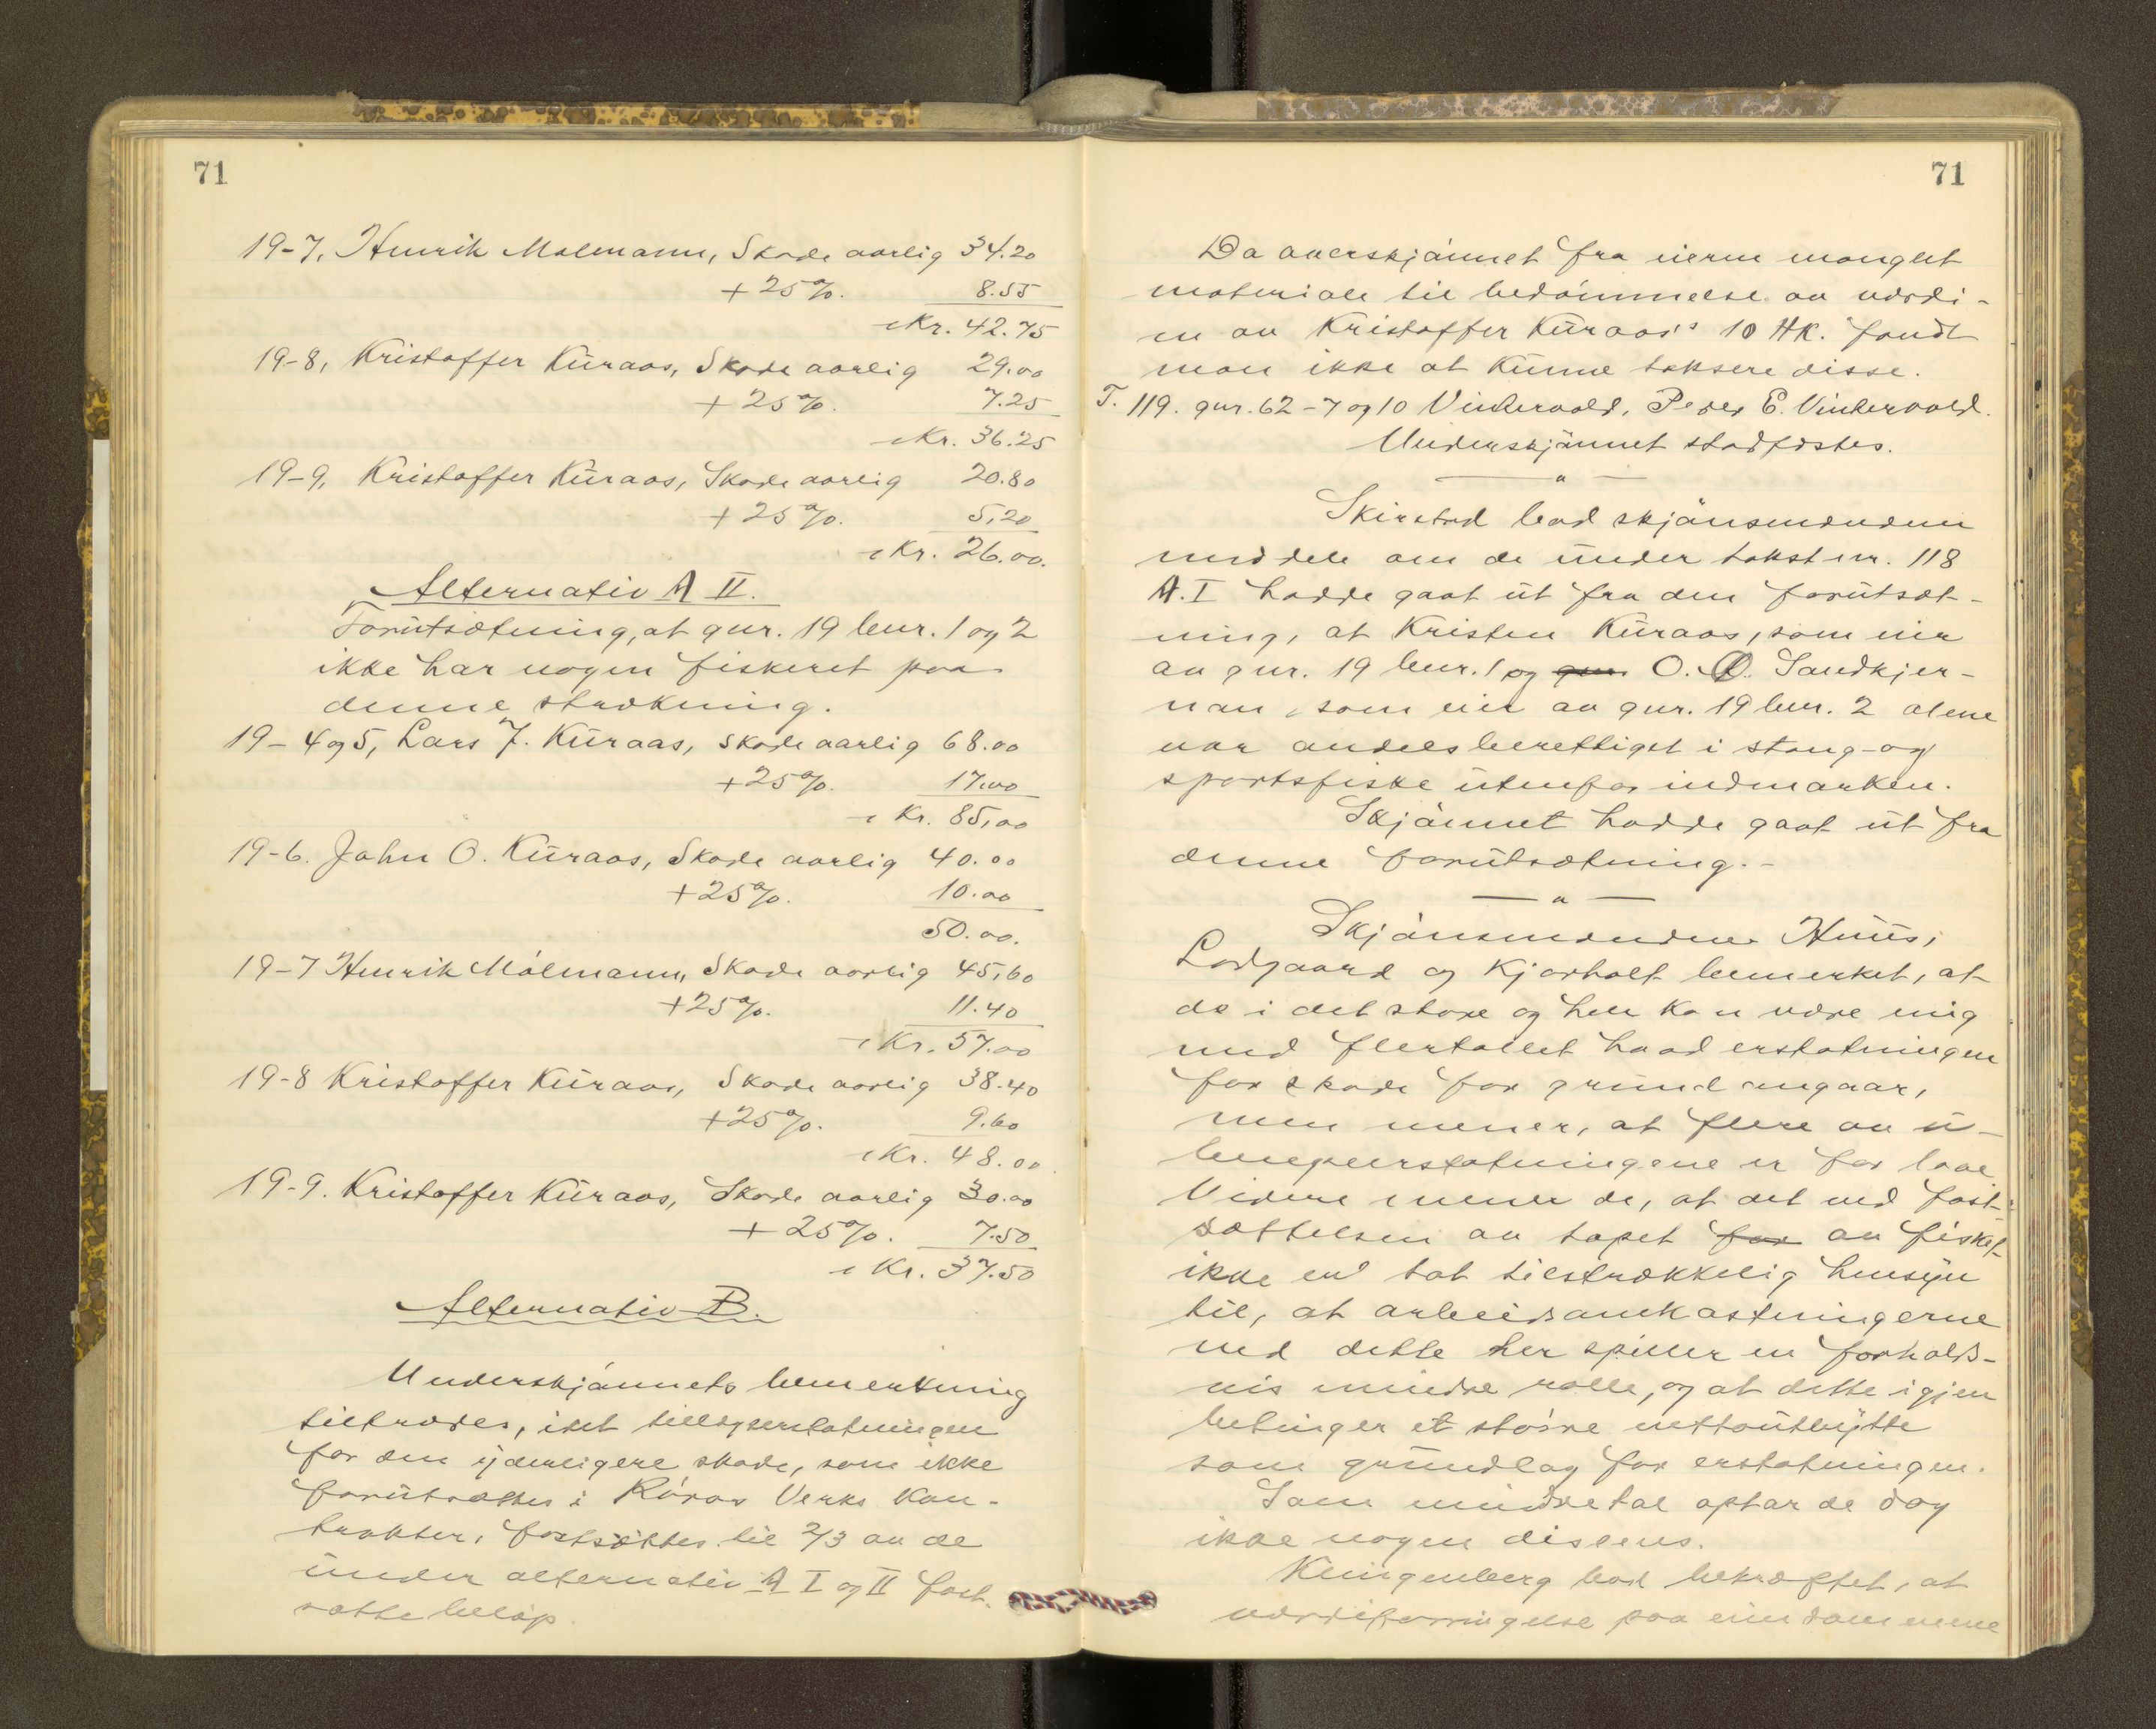 71
19-7, Henrik Molmann, Skade aarlig 34.20
+ 25%. 8.55
Kr. 42.75
19-8, Kristoffer Kuraas, Skade aarlig 29.00
+ 25%. 7.25
Kr. 36.25
19-9, Kristoffer Kuraas, Skade aarlig 20.80
+ 25%. 5,20
Kr. 26.00.
Alternativ A II.
Forutsætning, at gnr. 19 bnr. 1 og 2
ikke har nogen fiskeret paa
denne strækning.
19-4 og 5, Lars J. Kuraas, skade aarlig 68.00
+25%. 17.00
Kr. 85,00
19-6. John O. Kuraas, Skade aarlig 40.00
+25%. 10.00
50.00.
19-7 Henrik Mólmann, Skade aarlig 45,60
+25%. 11.40
Kr. 57.00
19-8 Kristoffer Kuraas, Skade aarlig 38.40
+25%. 9.60
Kr. 48.00.
19-9. Kristoffer Kuraas, Skade aarlig 30.00
+ 25%. 7.50
Kr. 37.50
Alternativ B.
Underskjønnets bemerkning
tiltrædes, idet tillægserstatningen
for den yderligere skade, som ikke
forutsættes i Røros Verks kon-
trakter, fastsættes til 2/3 av de
under alternativ A I og II fast-
satte beløp.
71
Da overskjønnet fra eierne manglet
materiale til bedømmelse av værdi-
en av Kristoffer Kuraas's 10 HK. fandt
man ikke at kunne taksere disse.
T. 119. gnr. 62-7 og 10 Vintervold, Peder E. Vintervold.
Underskjønnet stadfæstes.
— " —
Skirstad bad skjønsmændene
meddele om de under takst nr. 118
A. I hadde gaat ut fra den forutsæt-
ning, at Kristen Kuraas, som eier
av gnr. 19 bnr. 1 og gnr. O. O. Sandkjer-
nan, som eier av gnr. 19 bnr. 2 alene
var andelsberettiget i stang- og
sportsfiske utenfor indmarken.
Skjønnet hadde gaat ut fra
denne forutsætning. -
— " —
Skjønsmændene Huus,
Ladgaard og Kjørholt bemerket, at
de i det store og hele kan være enig
med flertallet hvad erstatningen
for skade for grund angaar,
men mener, at flere av u-
lempeerstatningene er for lave
Videre mener de, at det ved fast-
sættelsen av tapet for av fisket
ikke er tat tilstrækkelig hensyn
til, at arbeidsomkostningerne
ved dette her spiller en forholds-
vis mindre rolle, og at dette igjen
betinger et større nettoutbytte
som grundlag for erstatningen.
Som mindretal optar de dog
ikke nogen dissens.
Klingenberg bad bekræftet, at
værdiforringelse paa eiendommene